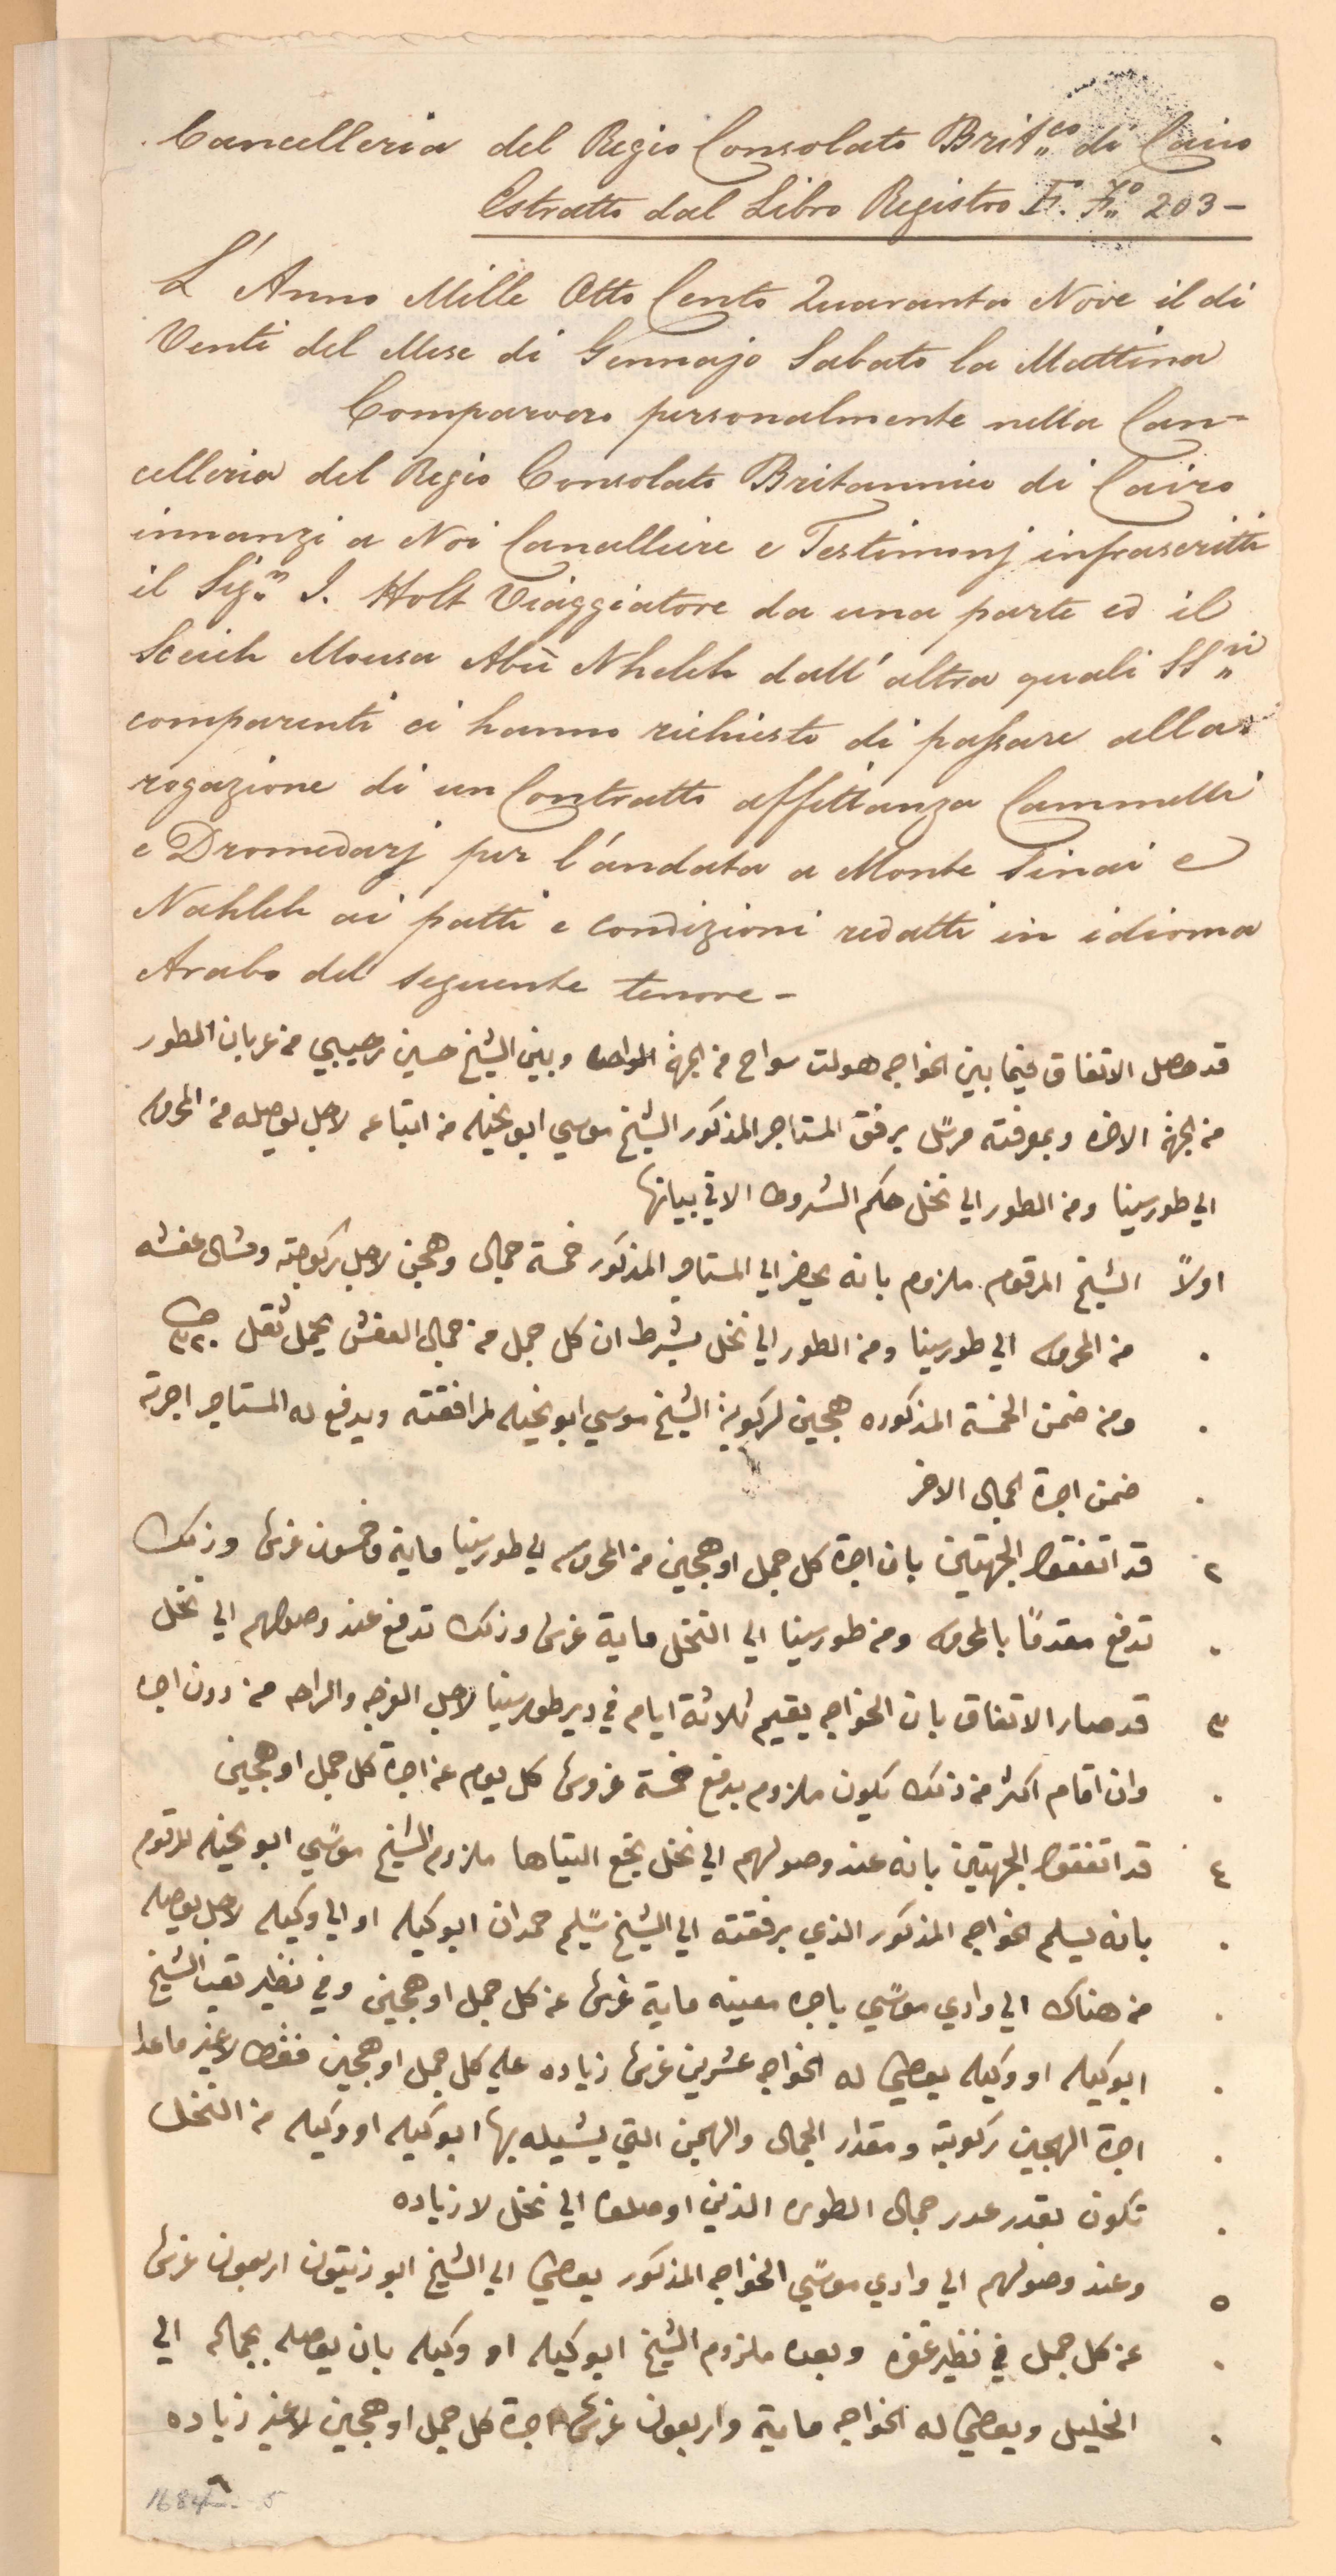 Cancelleria del Regio Consolato Brit.co di Cairo
Estratto dal Libro Registro F. F.o 203 -
L'Anno Mille Otto Cento Quaranta Nove il di
Venti del Mese di Gennajo Sabato la Mattina
Comparvero personalmente nella Can=
celleria del Regio Consolato Britannico di Cairo
innanzi a Noi Cancelliere e Testimonj infrascritti
il Sig.r I. Holt Viaggiatore da una parte ed il
Sceich Mousa Abù Nheleh dall'altra quali SS.ri
comparenti ci hanno richiesto di passare alla
rogazione di un Contratto affittanza Cammelli
e Dromedarj per l'andata a Monte Sinai e
Nahleh ai patti e condizioni redatti in idioma
Arabo del seguente tenore -
قد حصل الاتفاق فيما بين الخواجه هولت سواح من الجهة الواحده وبين الشيخ حسين رحيبي من عربان الطور
من الجهة الاخره وبمعرفته مرسل برفق المستاجر المذكور الشيخ موسي ابو نخيله من اتباعه لاجل يوصله من المحروسه
الي طورسينا ومن الطور الي نخل حكم الشروط الاتي بيانها
اولاً الشيخ المرقوم ملزوم بانه يحضر الي المستاجر المذكور خمسة جمال وهجن لاجل ركوبته ومشال عفشه
. من المحروسه الي طورسينا ومن الطور الي نخل بشرط ان كل جمل من جمال العفش يحمل ثقل ٣٢٠
. ومن ضمن الخمسة المذكوره هجين لركوبة الشيخ موسي ابو نخيله لمرافقته ويدفع له المستاجر اجرته
. ضمن اجرة الجمال الاخر
٢ قد اتفقوا الجهتين بان اجرة كل جمل او هجين من المحروسه الي طورسينا ماية وخمسون غرش وذلك
. تدفع مقدمًا بالمحروسه ومن طورسينا الي النخل ماية غرش وذلك تدفع عند وصولهم الي نخل
٣ قد صار الاتفاق بان الخواجه يقيم ثلاثة ايام في دير طورسينا لاجل الفرجه والراحه من دون اجره
. وان اقام اكثر من ذلك يكون ملزوم بدفع خمسة غروش كل يوم عن اجرة كل جمل او هجين
٤ قد اتفقوا الجهتين بانه عند وصولهم الي نخل بجع التياها ملزوم الشيخ موسي ابو نخيله المرقوم
. بانه يسلم الخواجه المذكور الذي برفقته الي الشيخ سليم حمدان ابو كيله او الي وكيله لاجل يوصله
. من هناك الي وادي موسي باجره معينه ماية غرش عن كل جمل او هجين وفي نظير تعب الشيخ
. ابو كيله او وكيله يعطي له الخواجه عشرين غرش زياده علي كل جمل او هجين فقط لا غير ماعدا
. اجرة الهجين ركوبته ومقدار الجمال والهجن التي يشيله بها ابو كيله او وكيله من النخل
. تكون بقدر عدد جمال الطوره الذين اوصلوه الي نخل لا زياده
٥ وعند وصولهم الي وادي موسي الخواجه المذكور يعطي الي الشيخ ابو زيتون اربعون غرش
. عن كل جمل في نظير غفره وبعده ملزوم الشيخ ابو كيله او وكيله بان يوصله بجماله الي
. الخليل ويعطي له الخواجه ماية واربعون غرش اجرة كل جمل او هجين لا غير زياده